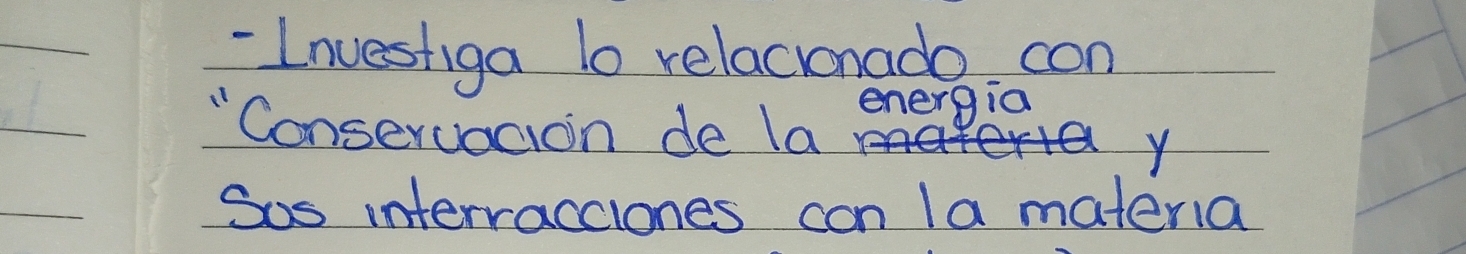 - Investiga lo relacionado con
"Conservación de la energía
materia y
Sus interracciones con la materia